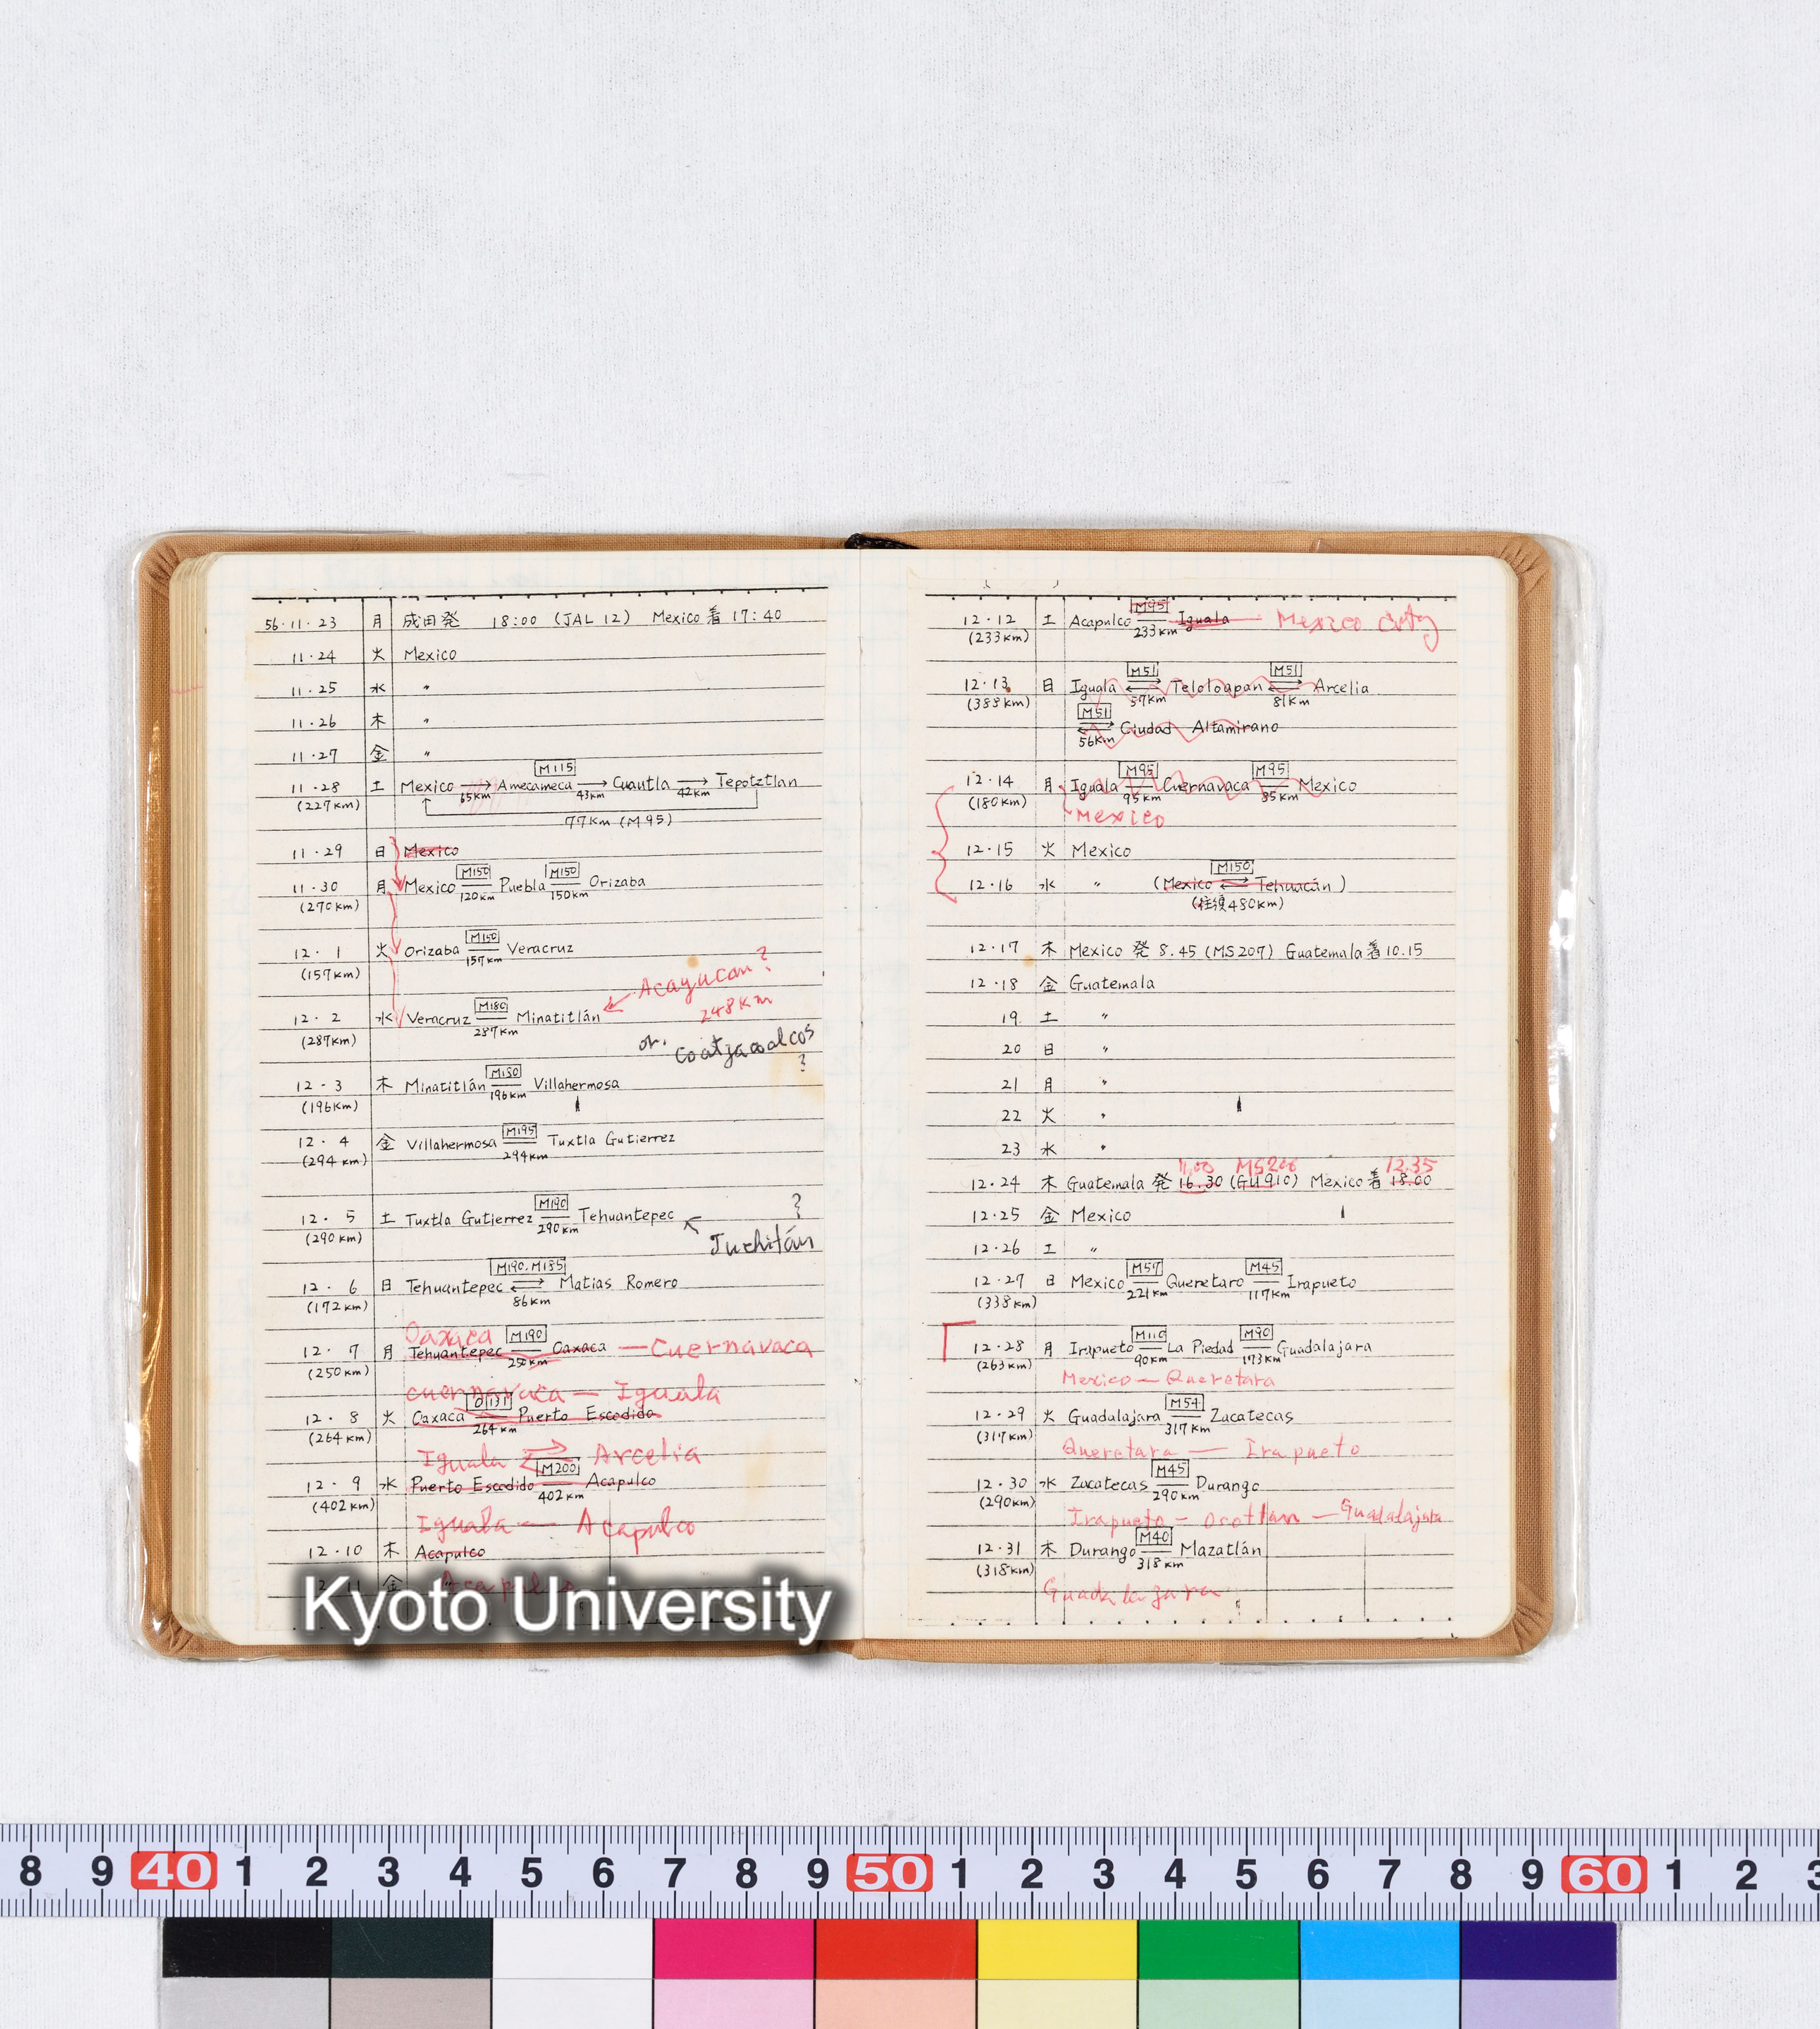 56.11.23 月 成田発 18:00 (JAL 12) Mexico着 17:40
11.24 火 Mexico
11.25 水 〃
11.26 木 〃
11.27 金 〃
M115
11.28 土 Mexico → Amecameca → Cuautla → Tepotztlan
(227km) 65km 43km 42km
77km (M95)
11.29 日 Mexico
M150 M150
11.30 月 Mexico Puebla Orizaba
(270km) 120km 150km
M150
12. 1 火 Orizaba Veracruz
(157km) 157km
Acayucan?
248km
M180
12. 2 水 Veracruz Minatitlán ←
(287km) 287km
or. Coatzacoalcos
?
M180
12. 3 木 Minatitlán Villahermosa
(196km) 196km
M195
12. 4 金 Villahermosa Tuxtla Gutierrez
(294km) 294km
M190
12. 5 土 Tuxtla Gutierrez Tehuantepec ← ?
(290km) 290km Juchitán
M190. M185
12. 6 日 Tehuantepec ⇄ Matias Romero
(172km) 86km
Oaxaca M190
12. 7 月 Tehuantepec Oaxaca — Cuernavaca
(250km) 250km
cuernavaca — Iguala
O131
12. 8 火 Oaxaca Puerto Escodido
(264km) 264km
Iguala ⇄ Arcelia
M200
12. 9 水 Puerto Escodido Acapulco
(402km) 402km
Iguala — Acapulco
12.10 木 Acapulco
金 Acapulco
Kyoto University
M95
12.12 土 Acapulco Iguala — Mexico city
(233km) 233km
M51 M51
12.13 日 Iguala ⇄ Teloloapan ⇄ Arcelia
(388km) 57km 81km
M51
⇄ Ciudad Altamirano
56km
M95 M95
12.14 月 Iguala Cuernavaca Mexico
(180km) 95km 85km
Mexico
12.15 火 Mexico
M150
12.16 水 〃 (Mexico ⇄ Tehuacán)
(往復480km)
12.17 木 Mexico 発 8.45 (MS207) Guatemala着10.15
12.18 金 Guatemala
19 土 〃
20 日 〃
21 月 〃
22 火 〃
23 水 〃
11.00 MS206 12.35
12.24 木 Guatemala 発 16.30 (GU910) Mexico着 18.00
12.25 金 Mexico
12.26 土 〃
M57 M45
12.27 日 Mexico Queretaro Irapueto
(338km) 221km 117km
M110 M90
12.28 月 Irapueto La Piedad Guadalajara
(263km) 90km 173km
Mexico — Queretara
M54
12.29 火 Guadalajara Zacatecas
(317km) 317km
Queretara — Irapueto
M45
12.30 水 Zacatecas Durango
(290km) 290km
Irapueto — Ocotlan — Guadalajara
M40
12.31 木 Durango Mazatlán
(318km) 318km
Guadalajara
8 9 40 1 2 3 4 5 6 7 8 9 50 1 2 3 4 5 6 7 8 9 60 1 2 3